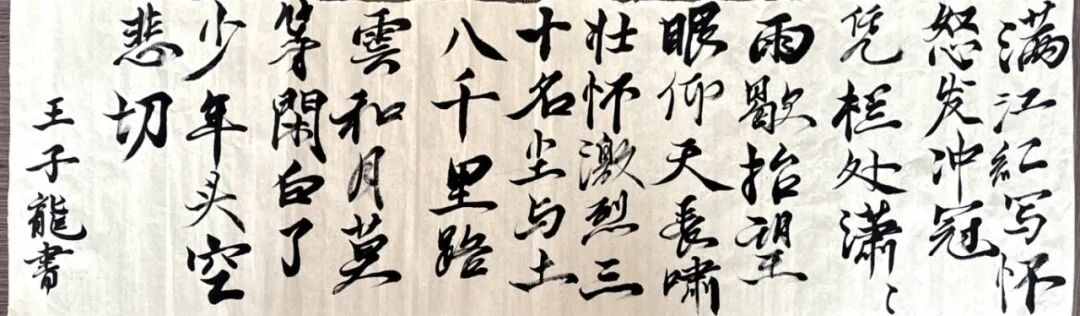 满江红写怀
怒发冲冠
凭栏处潇〻
雨歇抬望
眼仰天长啸
壮怀激烈三
十名尘与土
八千里路
雲和月莫
等閑白了
少年头空
悲切
王子龍書